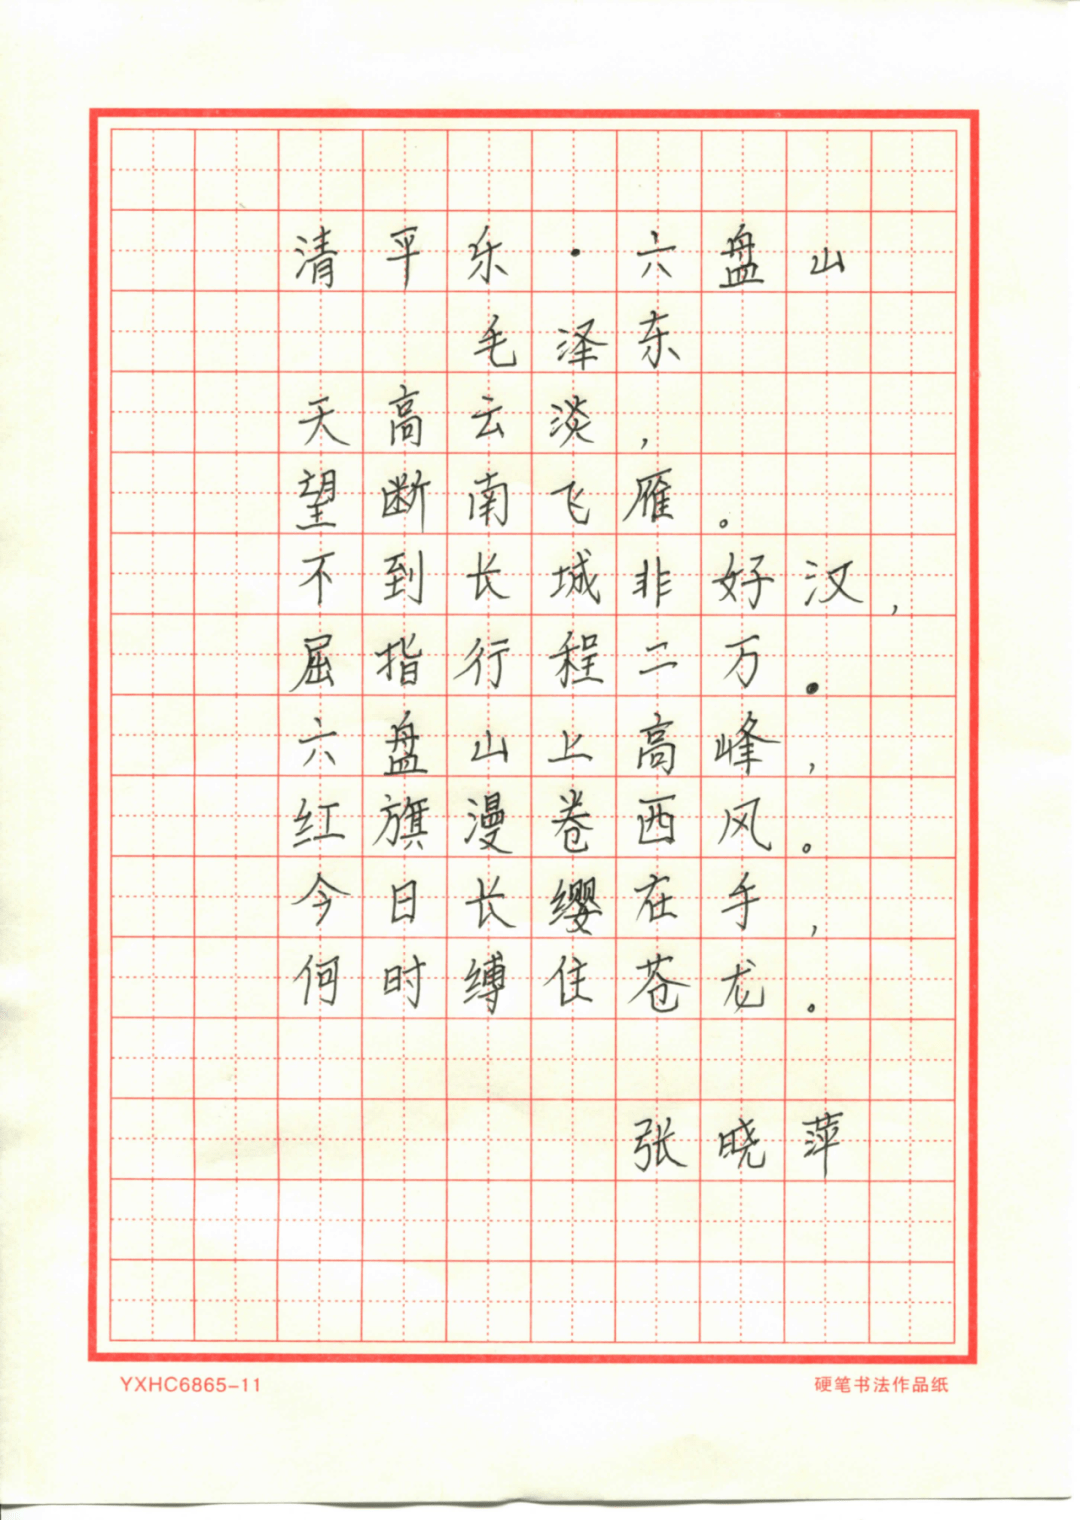 清平乐·六盘山
毛泽东
天高云淡，
望断南飞雁。
不到长城非好汉，
屈指行程二万。
六盘山上高峰，
红旗漫卷西风。
今日长缨在手，
何时缚住苍龙。
张晓萍
YXHC6865-11
硬笔书法作品纸